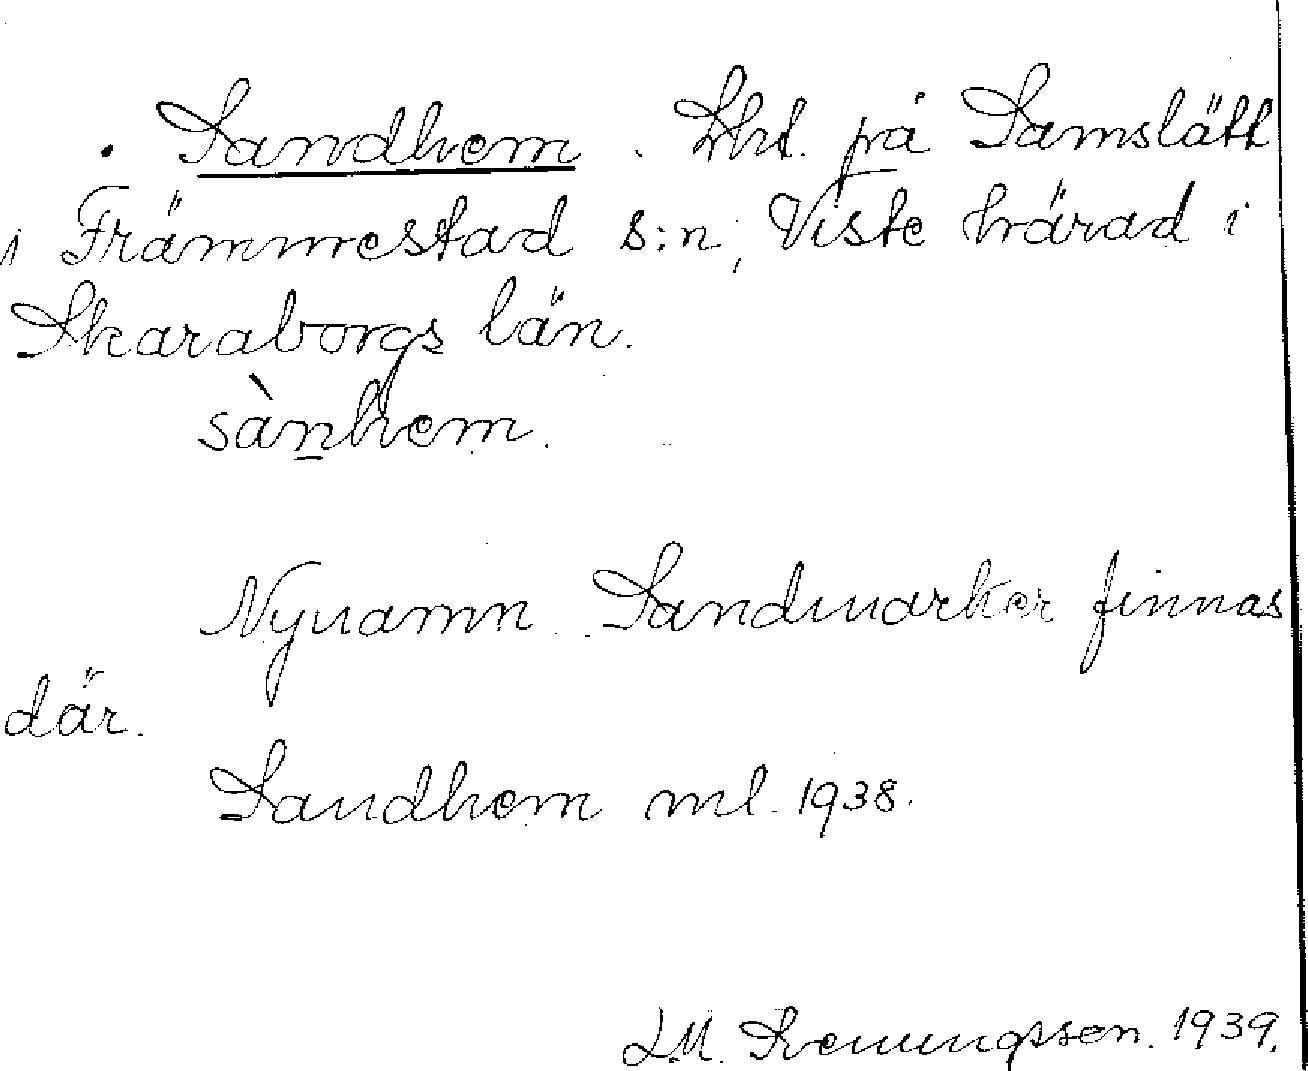 . Sandhem. Lht. på Samslätt
i Främmestad s:n, Viste härad i
Skaraborgs län.
sàn̲hem.
Nynamn. Sandmarker finnas
där.
Sandhem ml. 1938.
1939.